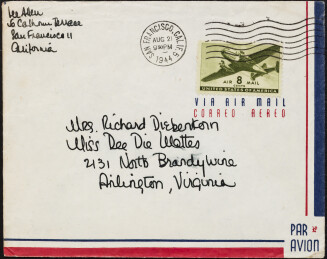 Lee Allen
San Francisco 11
California
SAN FRANCISCO, CALIF. 6
AUG 21
9 PM
1944
AIR 8 MAIL
UNITED STATES OF AMERICA
VIA AIR MAIL
CORREO AEREO
Mrs. Richard Diebenkorn
Miss Dee Die Mattes
2131 North Brandywine
Arlington, Virginia
PAR
AVION